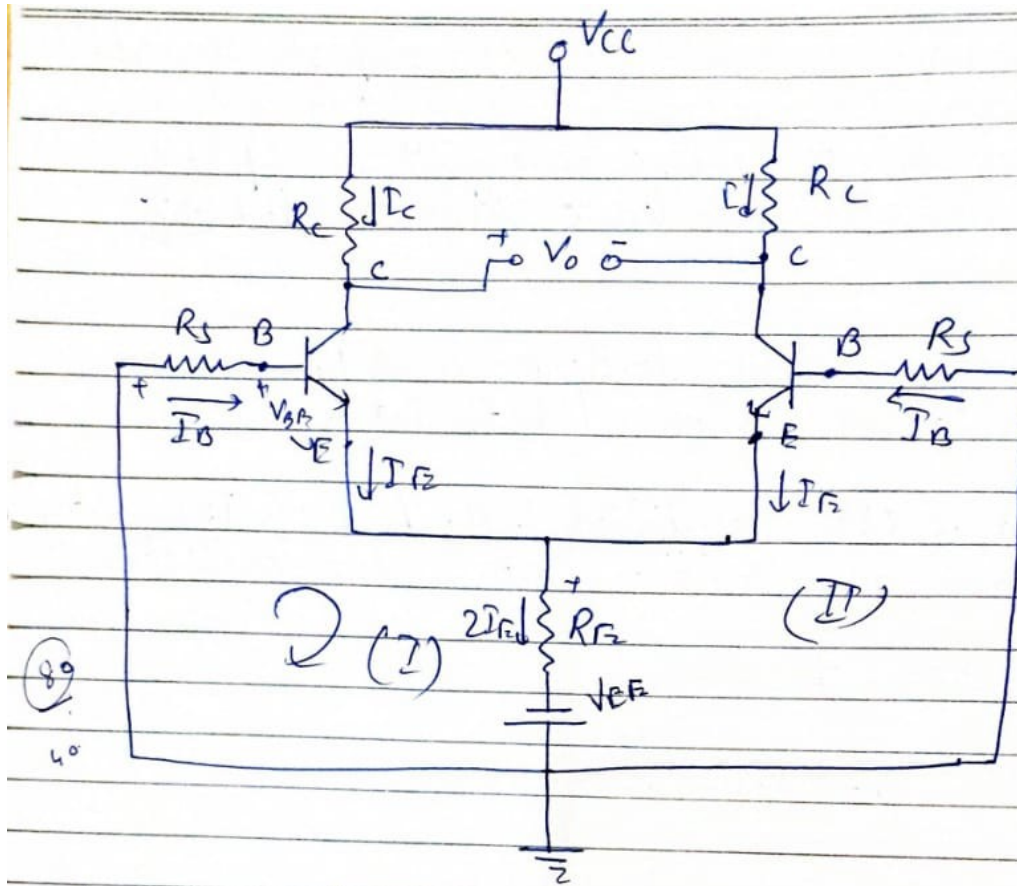 VCC
RC IC
IC RC
C + Vo - C
RS B
B RS
+ IB + VBE
- E
E IB
IE
IE
+
2IE RE
(I) (II)
VEE
89